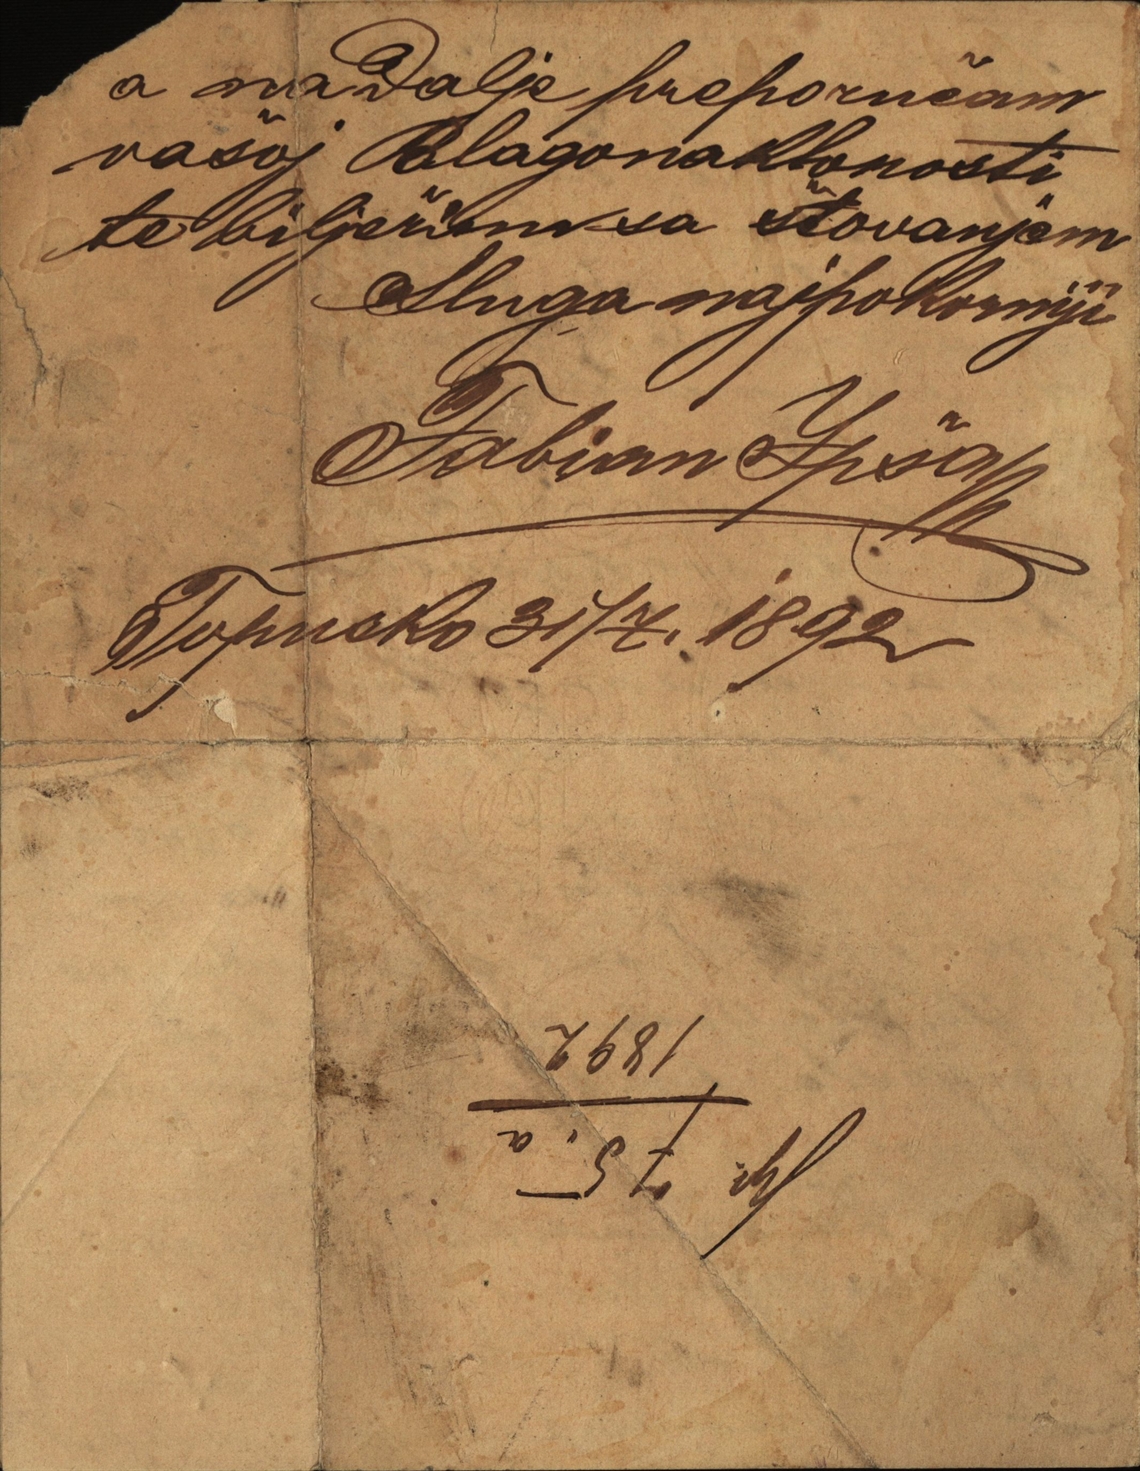 a nadalje preporučam
vašoj blagonaklonosti
te bilježim sa štovanjem
Sluga najpokorniji
Fabian Ipšag
Topusko 31/7. 1892
75. a
1892